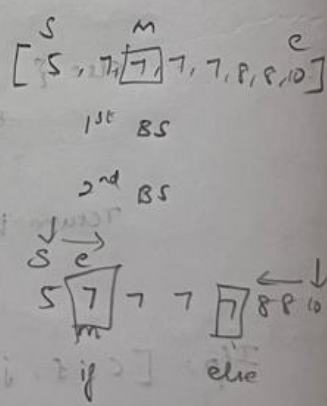 S m e
[5, 7, 7, 7, 7, 8, 8, 10]
1st BS
2nd BS
S e
5 7 7 7 7 8 8 10
m
if else